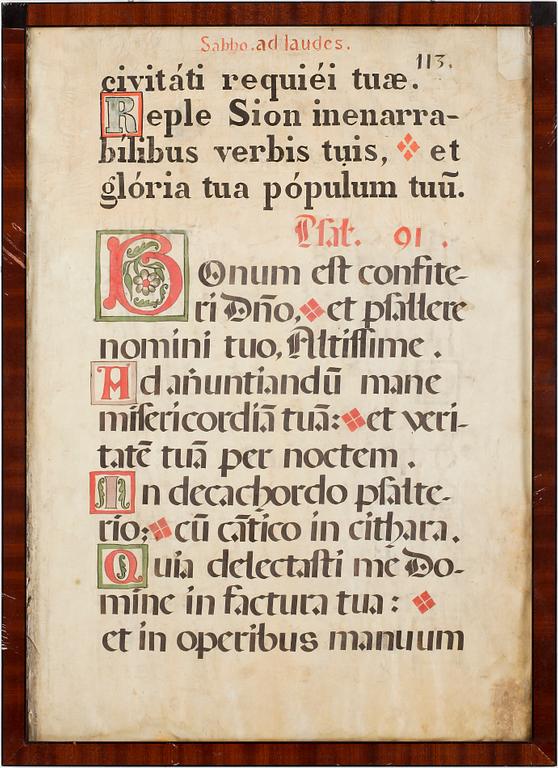 Sabbo. ad laudes.
113.
civitáti requiéi tuæ.
Reple Sion inenarra-
bílibus verbis tuis, et
glória tua pópulum tuū.
Psat. 91.
Bonum est confite-
ri Dño, et psallere
nomini tuo, Altissime.
Ad añuntiandū mane
misericordiā tuā: et veri-
tatē tuā per noctem.
In decachordo psalte-
rio; cū cātico in cithara.
Quia delectasti me Do-
mine in factura tua:
et in operibus manuum